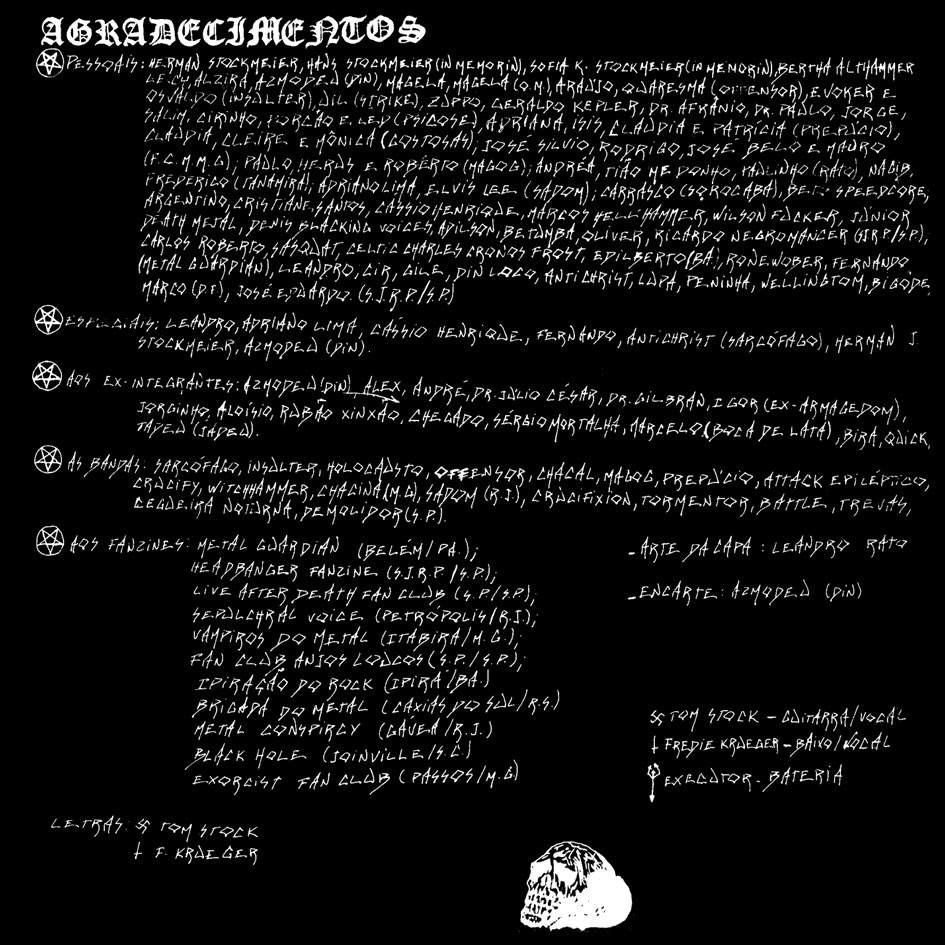 AGRADECIMENTOS
PESSOAIS: HERMAN STOCKMEIER, HANS STOCKMEIER (IN MEMORIN), SOFIA K. STOCKMEIER (IN MEMORIN), BERTHA ALTHAMMER
LECY, ALZIRA, AZMODEU (DIN), MAGELA, MAGELA (O.M.), ARAÚJO, QUARESMA (OFFENSOR), EVOKER E
OSVALDO (INSULTER), DIL (STRIKE), ZUPPO, GERALDO KEPLER, DR. AFRÂNIO, DR. PAULO, JORGE,
SALIM, CIRINHO, PORCÃO E LEU (PSICOSE), ADRIANA, ISIS, CLAUDIA E PATRÍCIA (PREPÚCIO),
CLAUDIA, CLEIRE E MÔNICA (GOSTOSAS); JOSÉ SILVIO, RODRIGO, JOSÉ BELO E MAURO
(F.C.M.M.G); PAULO, HERUS E ROBÉRTO (MAGOG); ANDRÉA, TIÃO ME DONHO, PAULINHO (RATO), NAGIB,
FREDERICO (TANAMIRA), ADRIANO LIMA, ELVIS LEE (SADOM); CARRASCO (SOROCABA), BETO SPEEDCORE,
ARGENTINO, CRISTIANE SANTOS, CASSIO HENRIQUE, MARCOS HELLHAMMER, WILSON FUCKER, JÚNIOR
DEATH METAL, DENIS BLACKING VOICES, ADILSON, BETUMBA, OLIVER, RICARDO NEGROMANCER (SJRP/SP),
CARLOS ROBERTO, SASQUAT CELTIC CHARLES CRONOS FROST, EDILBERTO (BA), RONEWOBER, FERNANDO
(METAL GUARDIAN), LEANDRO, CIR, GILE, DIN LOCO, ANTICHRIST, LUPA, PENINHA, WELLINGTOM, BIGODE,
MARCO (D.F), JOSÉ EDUARDO. (S.J.R.P/S.P)
ESPECIAIS: LEANDRO, ADRIANO LIMA, CÁSSIO HENRIQUE, FERNANDO, ANTICHRIST (SARCÓFAGO), HERMAN J.
STOCKMEIER, AZMODEU (DIN).
AOS EX-INTEGRANTES: AZMODEU (DIN) ALEX, ANDRÉ, DR. JÚLIO CÉSAR, DR. GILBRAN, IGOR (EX-ARMAGEDOM),
JORGINHO, ALOÍSIO, RUBÃO XINXÃO, CHEGADO, SÉRGIO MORTALHA, MARCELO (BOCA DE LATA), BIRA, QUICK,
TADEU (JADEU).
AS BANDAS: SARCÓFAGO, INSULTER, HOLOCAUSTO, OFFENSOR, CHACAL, MAGOG, PREPÚCIO, ATTACK EPILÉPTICO,
CRUCIFY, WITCHHAMMER, CHACINA (M.G), SADOM (R.J), CRUCIFIXION, TORMENTOR, BATTLE, TREVAS,
CEGUEIRA NOTURNA, DEMOLIDOR (S.P).
AOS FANZINES: METAL GUARDIAN (BELÉM/PA.);
HEADBANGER FANZINE (S.J.R.P./S.P);
LIVE AFTER DEATH FAN CLUB (S.P/S.P);
SEPULCHRAL VOICE (PETRÓPOLIS/R.J.);
VAMPIROS DO METAL (ITABIRA/M.G.);
FAN CLUB ANJOS LOUCOS (S.P./S.P.);
IPIRAÇÃO DO ROCK (IPIRÁ/BA.)
BRIGADA DO METAL (CAXIAS DO SUL/R.S.)
METAL CONSPIRCY (GÁVEA/R.J.)
BLACK HOLE (JOINVILLE/S.C)
EXORCIST FAN CLUB (PASSOS/M.G)
_ARTE DA CAPA: LEANDRO RATO
_ENCARTE: AZMODEU (DIN)
卐 TOM STOCK - GUITARRA/VOCAL
† FREDIE KRUEGER - BAIXO/VOCAL
EXECUTOR - BATERIA
LETRAS: 卐 TOM STOCK
† F. KRUEGER